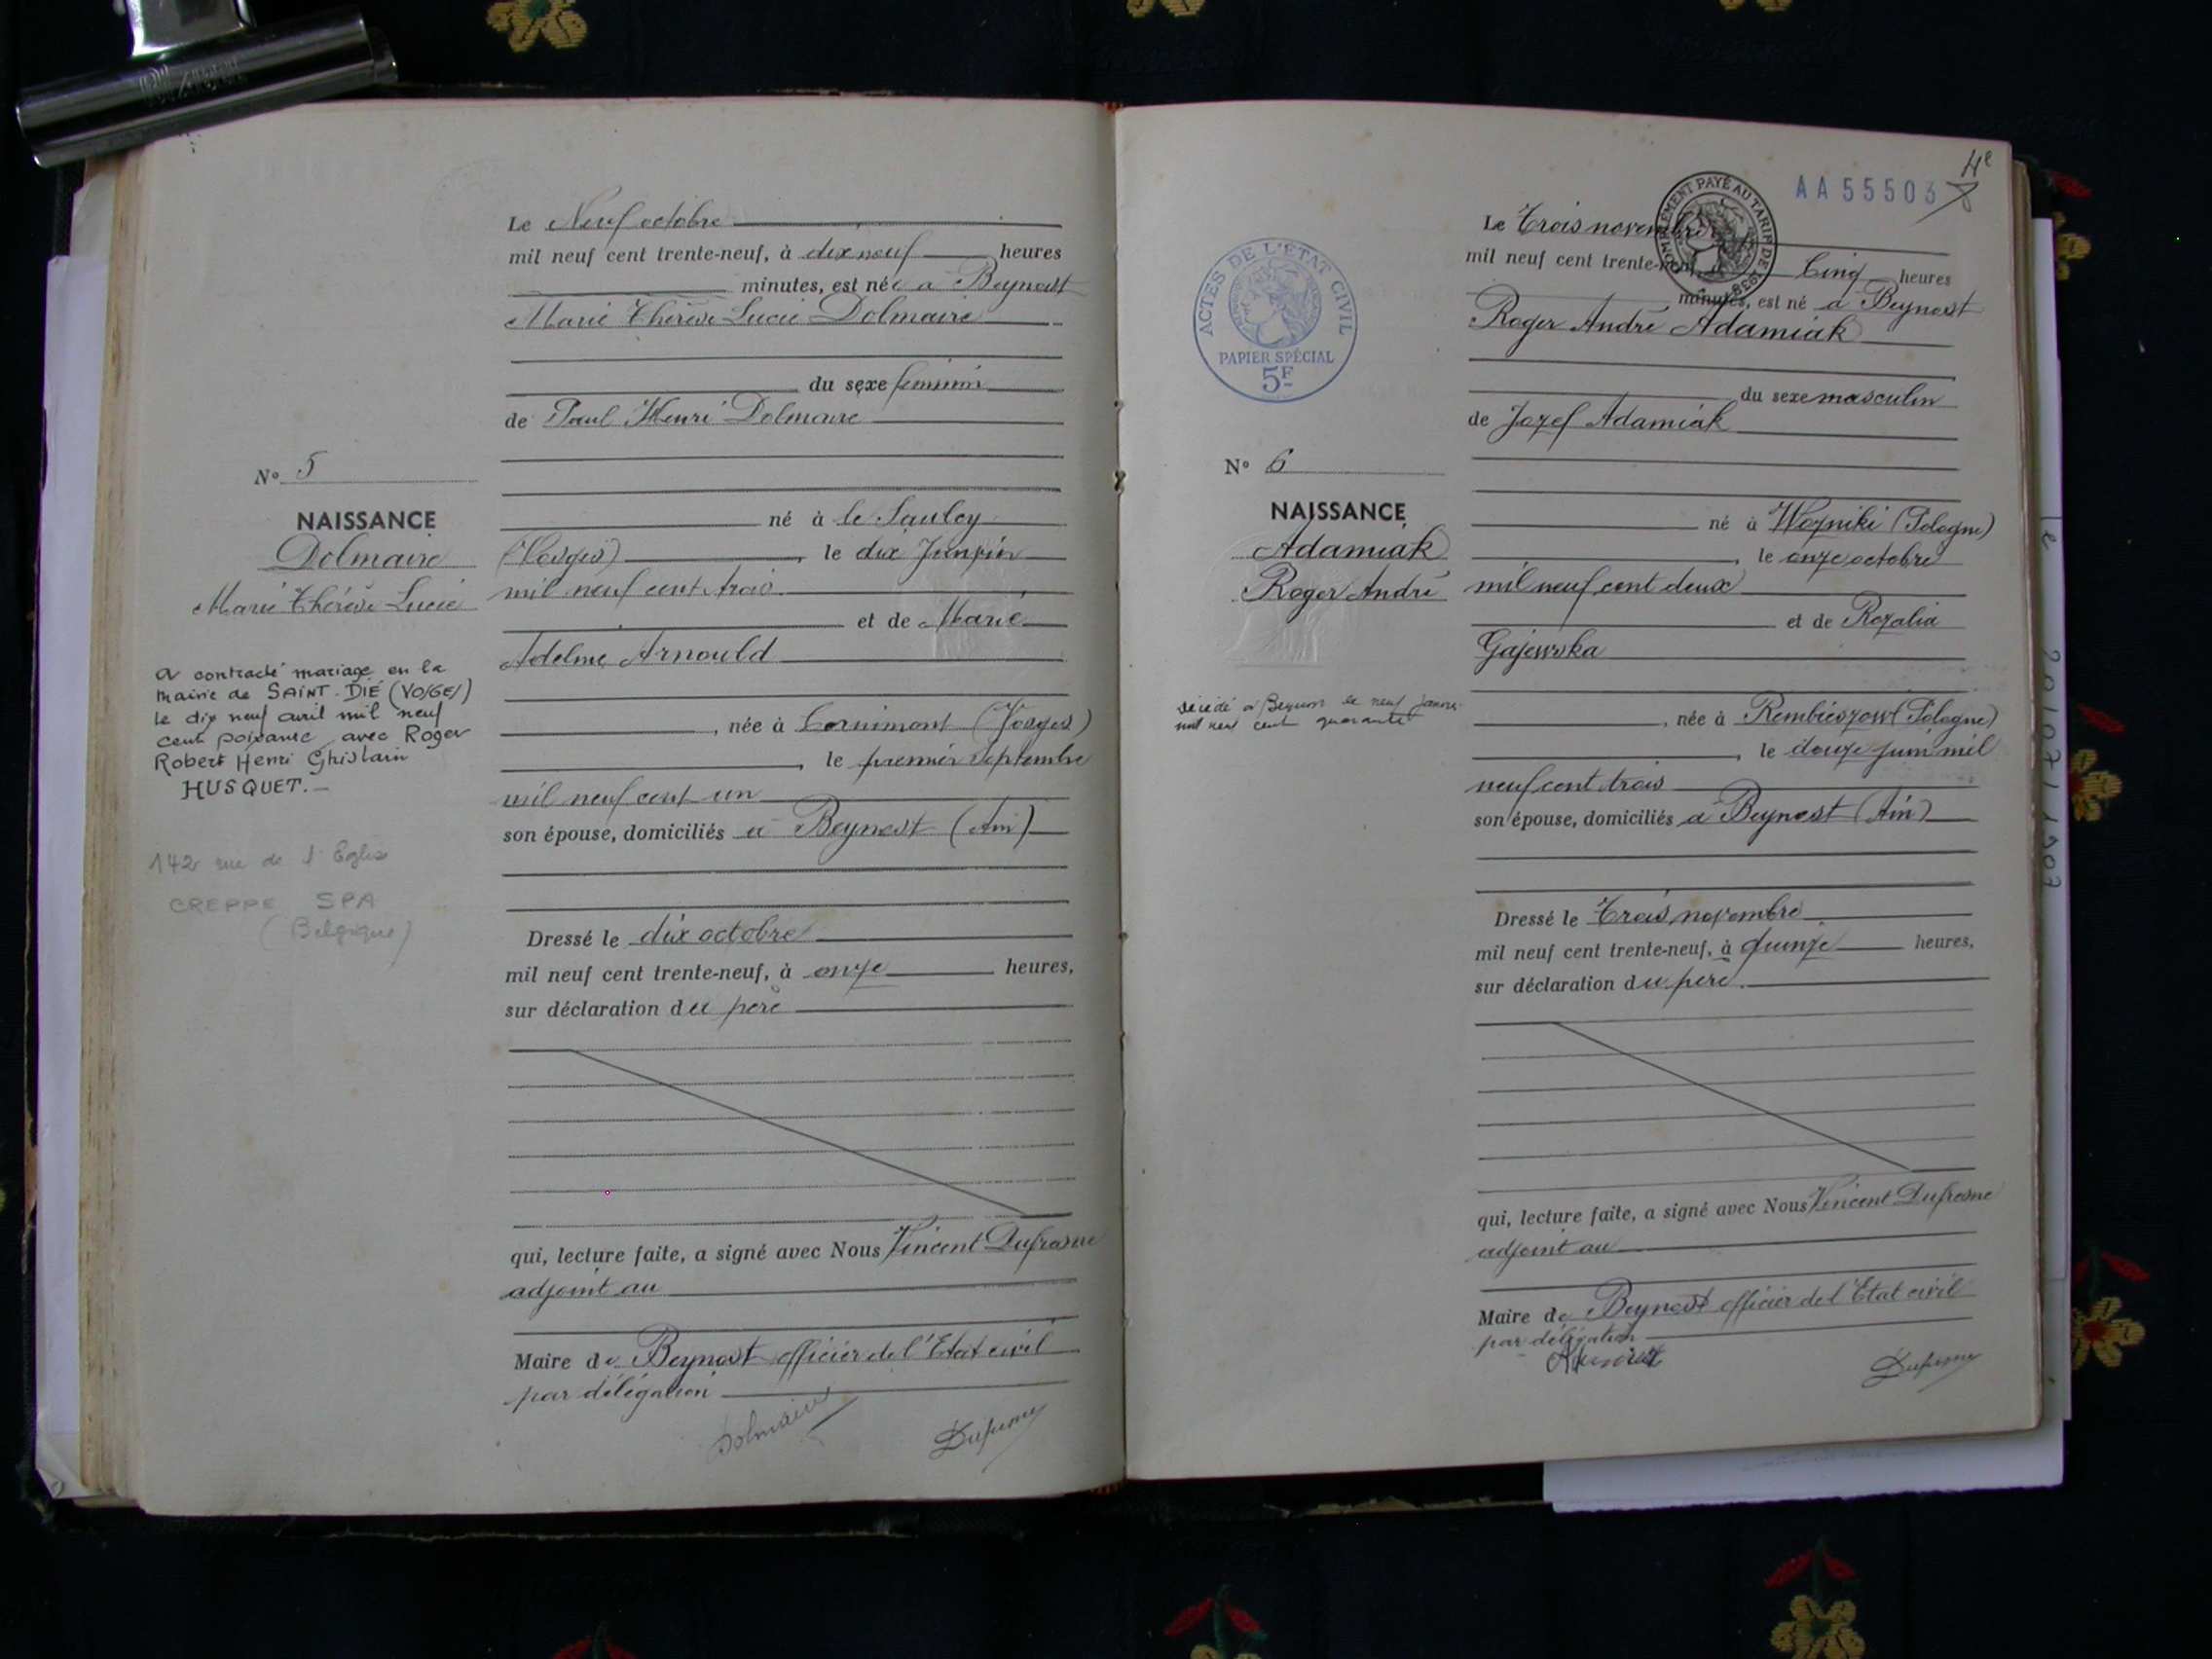 Le Neuf octobre
mil neuf cent trente-neuf, à dix neuf heures
minutes, est née a Beynost
Marie Thérèse Lucie Dolmaire
du sexe feminin
de Paul Henri Dolmaire
N° 5
NAISSANCE
Dolmaire
Marie Thérèse Lucie
né à le Saulcy
(Vosges), le dix
mil neuf cent trois
et de Marie
Adeline Arnould
, née à Cornimont (Vosges)
, le premier Septembre
mil neuf cent un
son épouse, domiciliés à Beynost (Ain)
a contracté mariage en la
mairie de SAINT-DIÉ (VOSGES)
le dix neuf avril mil neuf
cent soixante avec Roger
Robert Henri Ghislain
HUSQUET.-
142 rue de l'Eglise
CREPPE SPA
(Belgique)
Dressé le dix octobre
mil neuf cent trente-neuf, à onze heures,
sur déclaration du père
qui, lecture faite, a signé avec Nous Vincent Dufresne
adjoint au
Maire de Beynost officier de l'Etat civil
par délégation
Dolmaire
Dufresne
4e
AA 55503
COMPLÉMENT PAYÉ AU TARIF DE 1938
ACTES DE L'ÉTAT CIVIL
PAPIER SPÉCIAL
5F
Le Trois novembre
mil neuf cent trente-neuf, à Cinq heures
minutes, est né a Beynost
Roger André Adamiak
du sexe masculin
de Jozef Adamiak
N° 6
NAISSANCE
Adamiak
Roger André
né à Wozniki (Pologne)
, le onze octobre
mil neuf cent deux
et de Rozalia
Gajewska
, née à Rembieszow (Pologne)
, le douze juin mil
neuf cent trois
son épouse, domiciliés a Beynost (Ain)
décédé a le neuf janvier
mil neuf cent quarante
Dressé le Trois novembre
mil neuf cent trente-neuf, à quinze heures,
sur déclaration du père.
qui, lecture faite, a signé avec Nous Vincent Dufresne
adjoint au
Maire de Beynost officier de l'Etat civil
par délégation
Dufresne